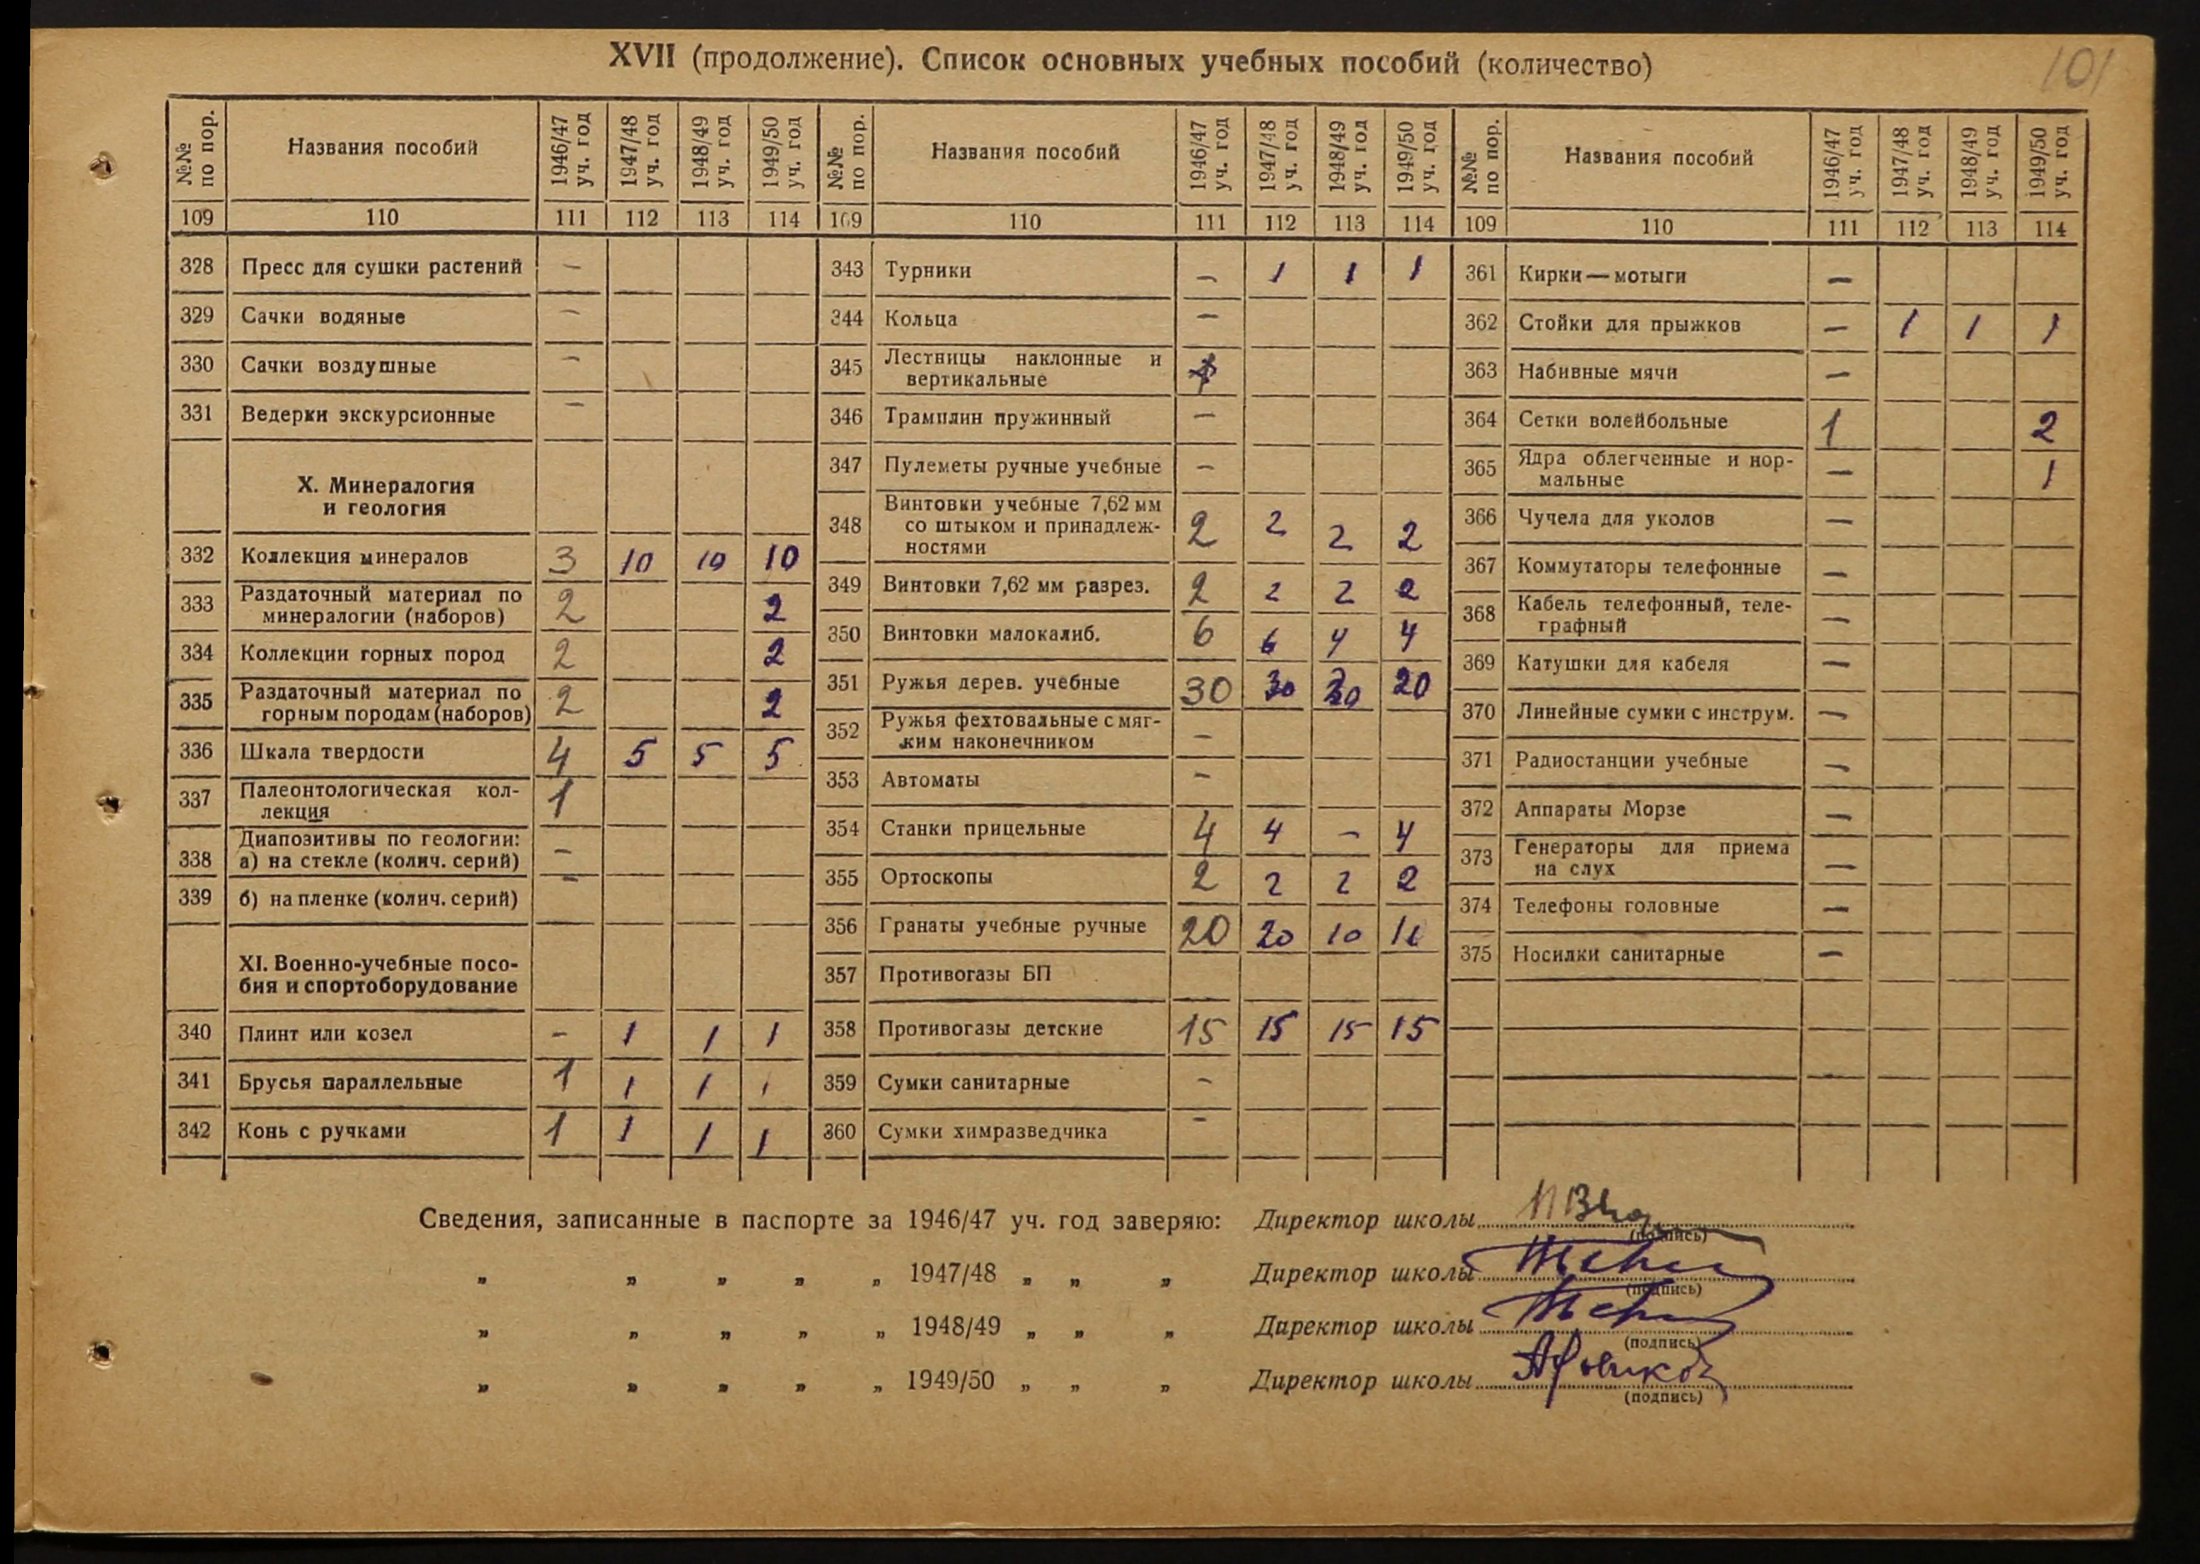 101
XVII (продолжение). Список основных учебных пособий (количество)
№№ по пор. Названия пособий 1946/47 уч. год 1947/48 уч. год 1948/49 уч. год 1949/50 уч. год
109 110 111 112 113 114
328 Пресс для сушки растений —
329 Сачки водяные —
330 Сачки воздушные —
331 Ведерки экскурсионные —
X. Минералогия
и геология
332 Коллекция минералов 3 10 10 10
333 Раздаточный материал по
минералогии (наборов) 2 2
334 Коллекции горных пород 2 2
335 Раздаточный материал по
горным породам (наборов) 2 2
336 Шкала твердости 4 5 5 5
337 Палеонтологическая кол-
лекция 1
Диапозитивы по геологии:
338 а) на стекле (колич. серий) —
339 б) на пленке (колич. серий) —
XI. Военно-учебные посо-
бия и спортоборудование
340 Плинт или козел — 1 1 1
341 Брусья параллельные 1 1 1 1
342 Конь с ручками 1 1 1 1
№№ по пор. Названия пособий 1946/47 уч. год 1947/48 уч. год 1948/49 уч. год 1949/50 уч. год
109 110 111 112 113 114
343 Турники — 1 1 1
344 Кольца —
345 Лестницы наклонные и
вертикальные
346 Трамплин пружинный —
347 Пулеметы ручные учебные —
348 Винтовки учебные 7,62 мм
со штыком и принадлеж-
ностями 2 2 2 2
349 Винтовки 7,62 мм разрез. 2 2 2 2
350 Винтовки малокалиб. 6 6 4 4
351 Ружья дерев. учебные 30 30 20
352 Ружья фехтовальные с мяг-
ким наконечником —
353 Автоматы —
354 Станки прицельные 4 4 — 4
355 Ортоскопы 2 2 2 2
356 Гранаты учебные ручные 20 20 10
357 Противогазы БП
358 Противогазы детские 15 15 15 15
359 Сумки санитарные —
360 Сумки химразведчика —
№№ по пор. Названия пособий 1946/47 уч. год 1947/48 уч. год 1948/49 уч. год 1949/50 уч. год
109 110 111 112 113 114
361 Кирки—мотыги —
362 Стойки для прыжков — 1 1 1
363 Набивные мячи —
364 Сетки волейбольные 1 2
365 Ядра облегченные и нор-
мальные — 1
366 Чучела для уколов —
367 Коммутаторы телефонные —
368 Кабель телефонный, теле-
графный —
369 Катушки для кабеля —
370 Линейные сумки с инструм. —
371 Радиостанции учебные —
372 Аппараты Морзе —
373 Генераторы для приема
на слух —
374 Телефоны головные —
375 Носилки санитарные —
Сведения, записанные в паспорте за 1946/47 уч. год заверяю: Директор школы
(подпись)
„ „ „ „ „ 1947/48 „ „ „ Директор школы
(подпись)
„ „ „ „ „ 1948/49 „ „ „ Директор школы
(подпись)
„ „ „ „ „ 1949/50 „ „ „ Директор школы
(подпись)